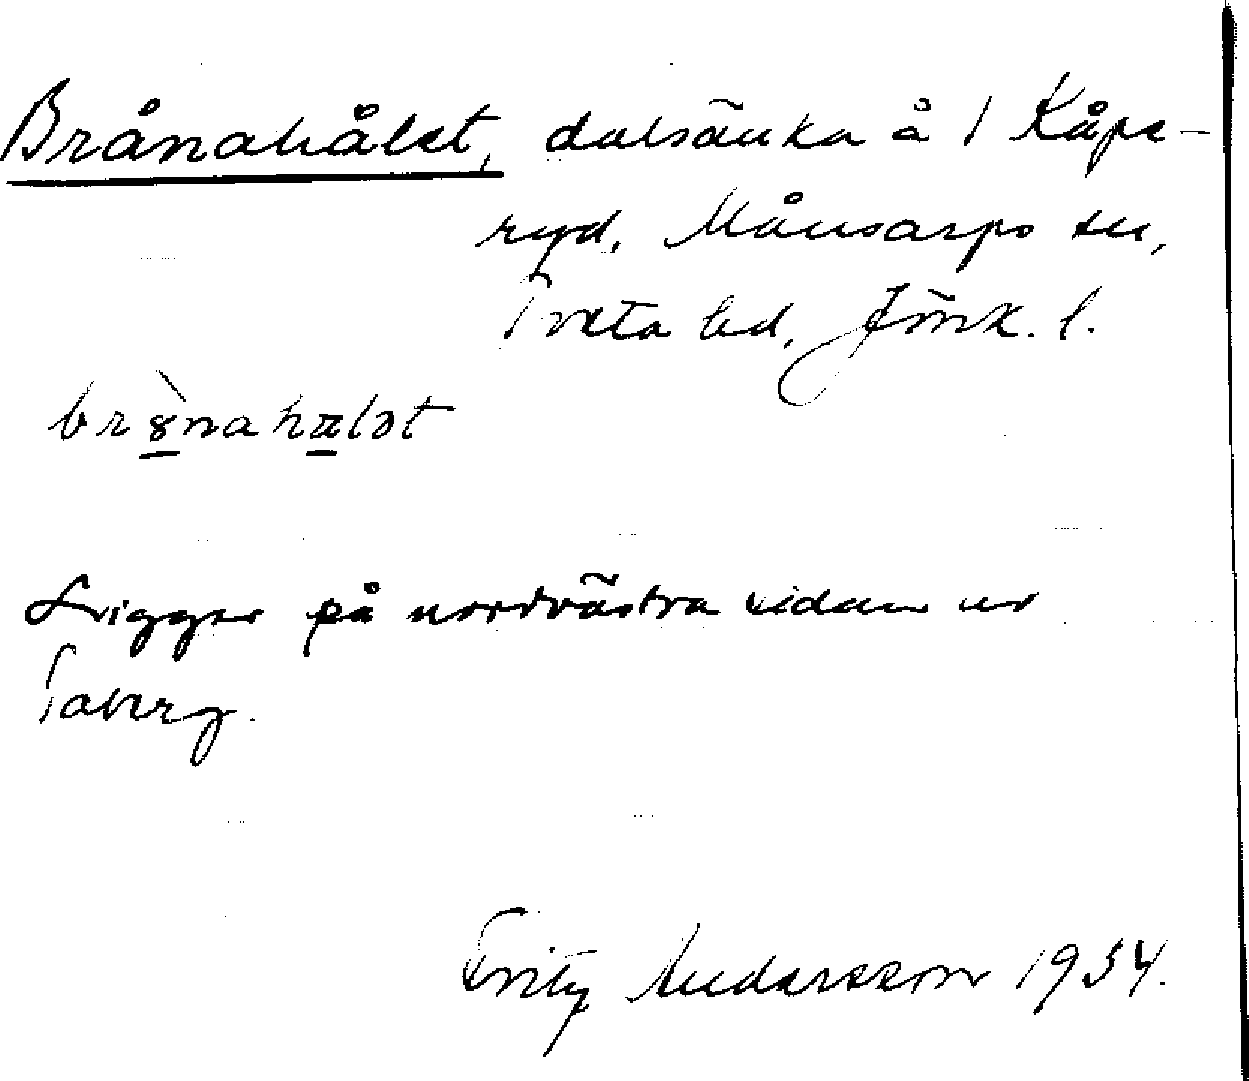 Brånahålet, dalsänka å 1 Kåpe-
ryd, Månsarps sn,
Tveta hd, Jönk. l.
br8̀nahalət
Ligger på nordvästra sidan av
Taberg.
Fritz Andersson 1934.